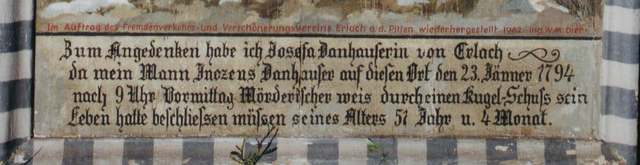 Im Auftrag des Fremdenverkehrs- und Verschönerungsvereins Erlach a.d. Pitten wiederhergestellt 1962
Zum Angedenken habe ich Josefa Danhauserin von Erlach
da mein Mann Inozens Danhauser auf diesen Ort den 23. Jänner 1794
nach 9 Uhr Vormittag Mörderischer weis durch einen Kugel-Schuss sein
Leben hatte beschliessen müssen seines Alters 57 Jahr u. 4 Monat.